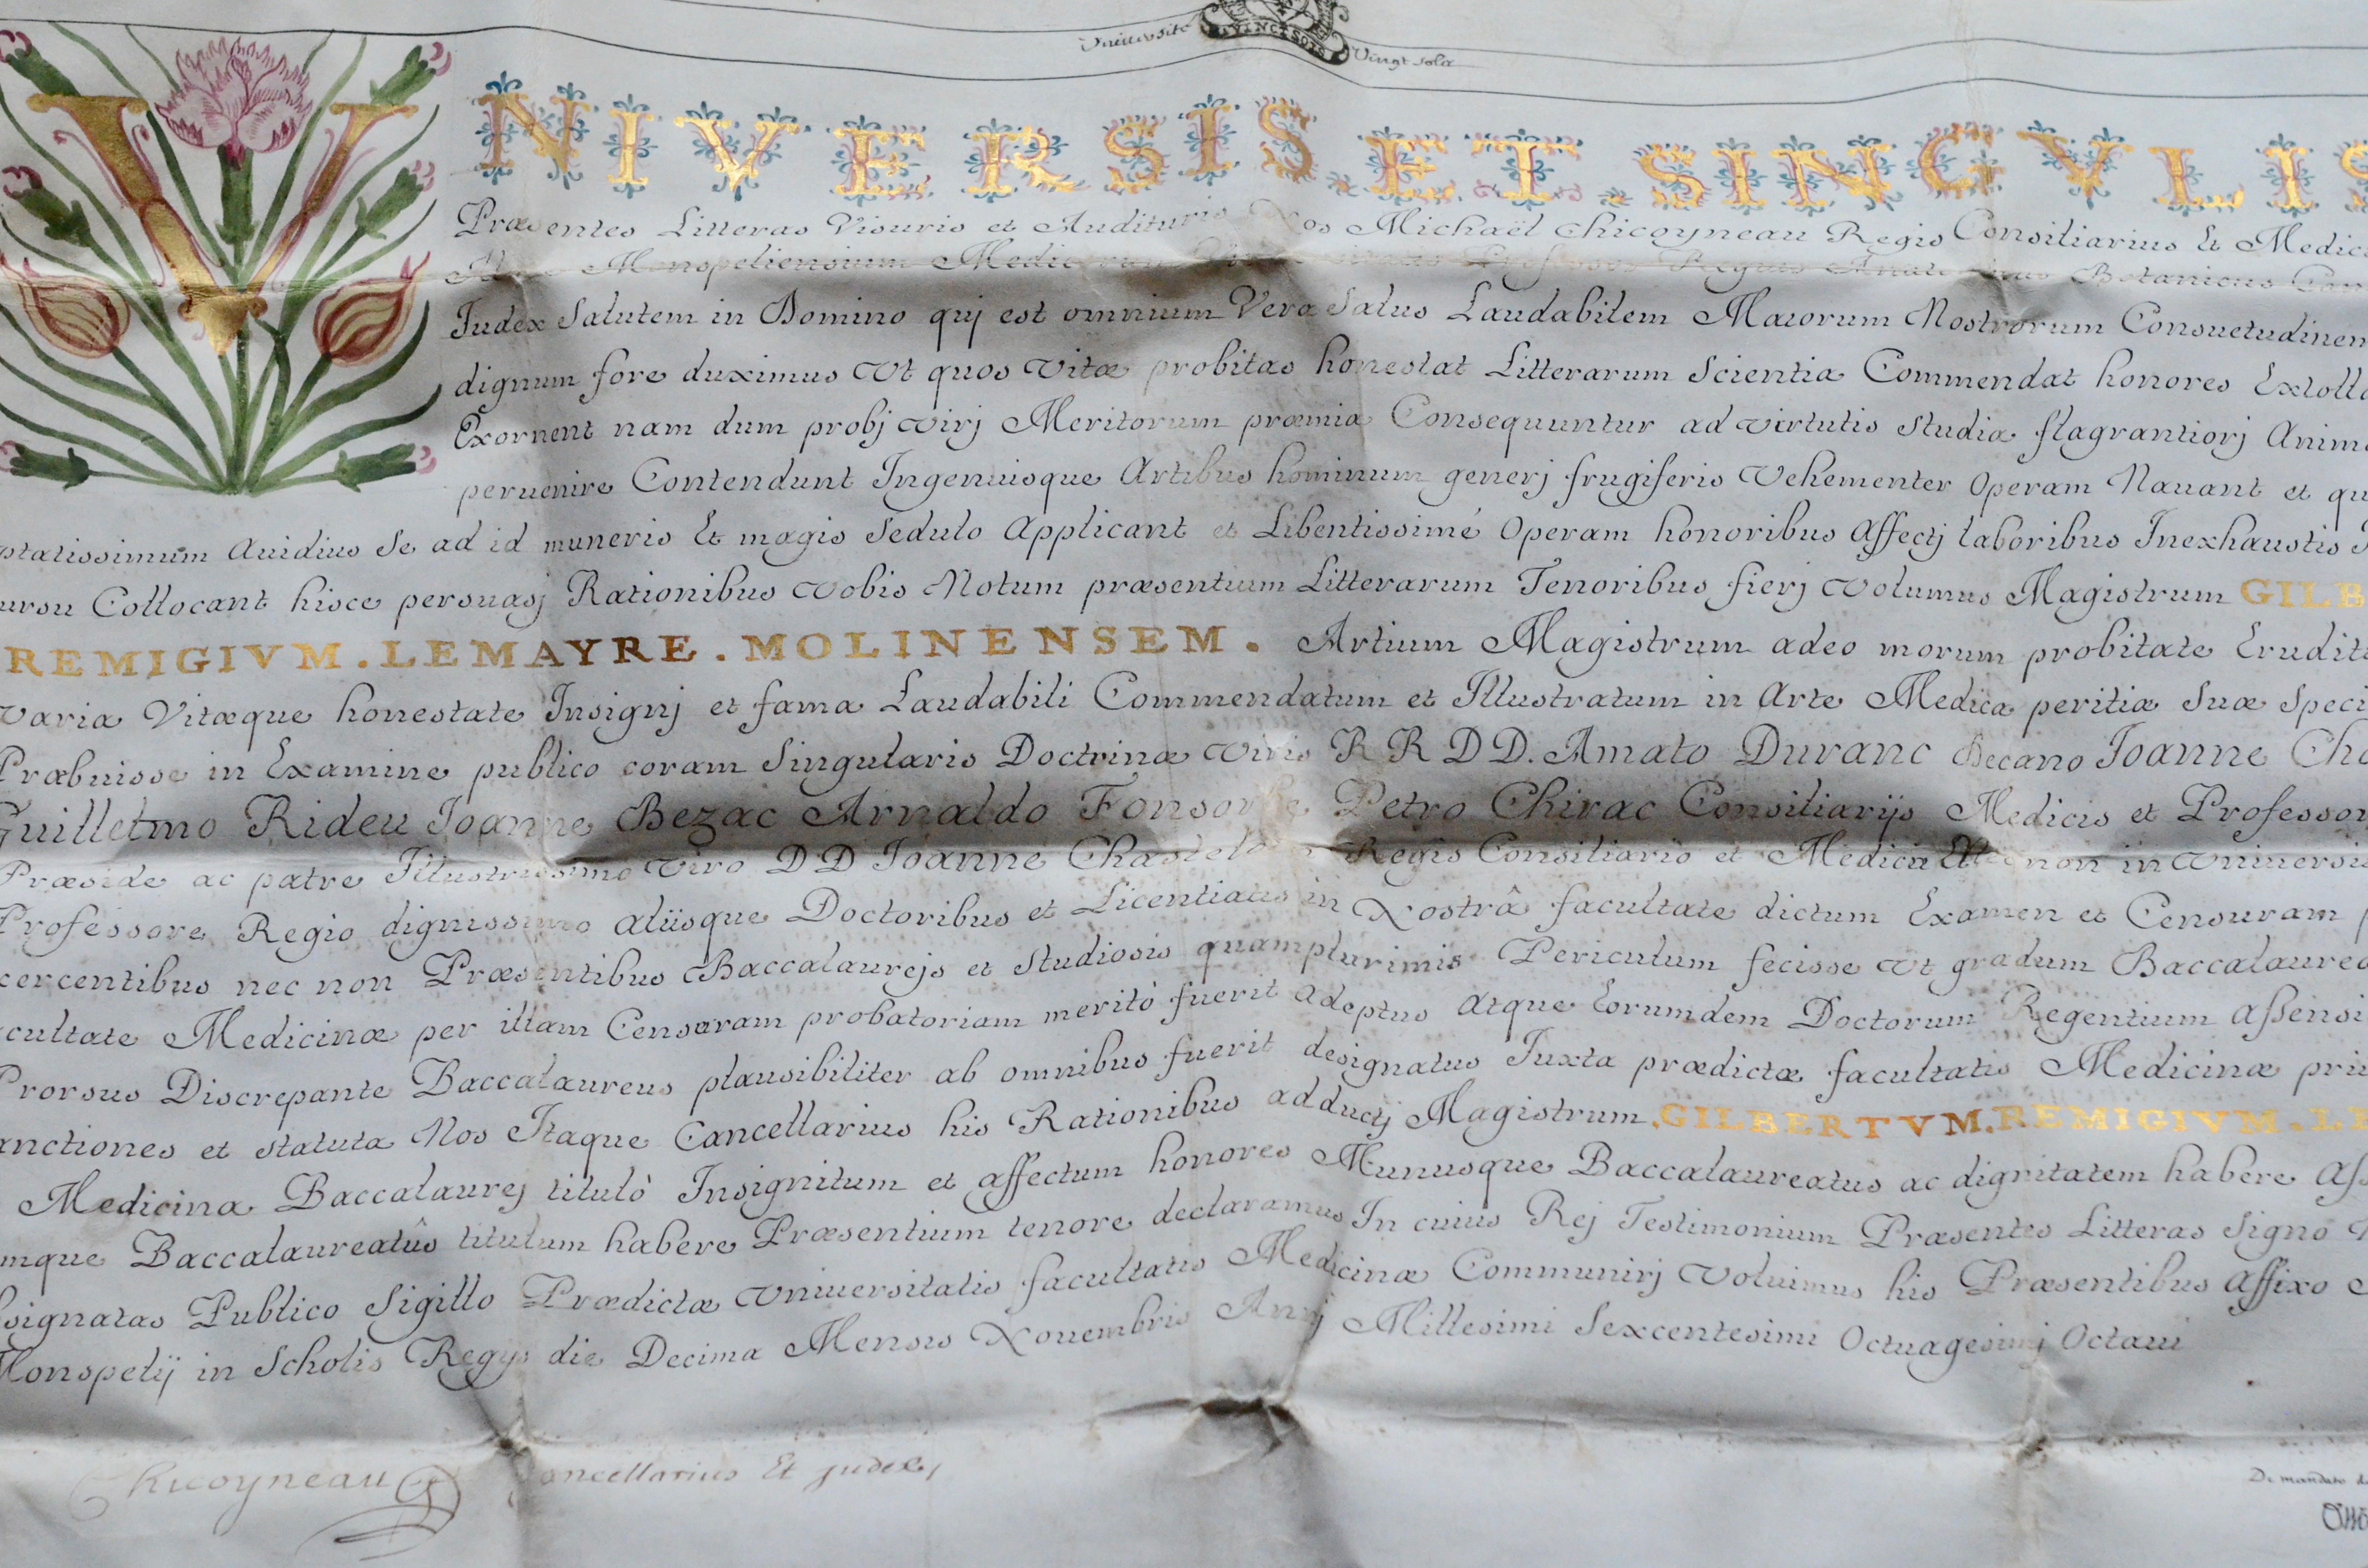 Université VINGT SOLS Vingt sols
VNIVERSIS.ET.SINGVLIS
Præsentes Litteras Visuris et Audituris Nos Michaël Chicoyneau Regis Consiliarius Et Medic
Monspeliensium Botanicus
Iudex Salutem in Domino quj est omnium Vera Salus Laudabilem Maiorum Nostrorum Consuetudinem
dignum fore duximus Vt quos Vitæ probitas honestat Litterarum Scientia Commendat honores Extolla
Exornent nam dum probj virj Meritorum præmia Consequuntur ad virtutis studia flagrantiorj Anim
peruenire Contendunt Ingenuisque Artibus hominum generj frugiferis Vehementer Operam Nauant et qu
ptatissimum Auidius Se ad id muneris Et magis Sedulo Applicant et Libentissimé Operam honoribus Affectj laboribus Inexhaustis
ursu Collocant hisce persuasj Rationibus Vobis Notum præsentium Litterarum Tenoribus fierj Volumus Magistrum GILB
REMIGIVM.LEMAYRE.MOLINENSEM. Artium Magistrum adeo morum probitate Erudit
Varia Vitæque honestate Insignj et fama Laudabili Commendatum et Illustratum in Arte Medica peritiæ Suæ Speci
Præbuisse in Examine publico coram Singularis Doctrinæ Viris R R D D. Amato Duranc Decano Ioanne Cha
Guillelmo Rideu Ioanne Bezac Arnaldo Fonsorbe Petro Chirac Consiliarijs Medicis et Professor
Præside ac patre Illustrissimo Viro D D Ioanne Chastela Regis Consiliario et Medico non in Vniuersi
Professore Regio dignissimo aliisque Doctoribus et Licentiatis in Nostrâ facultate dictum Examen et Censuram
cercentibus nec non Præsentibus Baccalaurejs et Studiosis quamplurimis Periculum fecisse Vt gradum Baccalaurea
cultate Medicinæ per illam Censuram probatoriam meritò fuerit adeptus Atque Eorumdem Doctorum Regentium Assensi
Prorsus Discrepante Baccalaureus plausibiliter ab omnibus fuerit designatus Iuxta prædictæ facultatis Medicinæ priu
anctiones et statuta Nos Itaque Cancellarius his Rationibus adductj Magistrum.GILBERTVM.REMIGIVM.LE
Medicina Baccalaurej titulò Insignitum et affectum honores Munusque Baccalaureatus ac dignitatem habere Ass
mque Baccalaureatûs titulum habere Præsentium tenore declaramus In cuius Rej Testimonium Præsentes Litteras Signo
signatas Publico Sigillo Prædictæ Vniuersitatis facultatis Medicinæ Communirj Voluimus his Præsentibus Affixo
Monspelij in Scholis Regys die Decima Mensis Nouembris Annj Millesimi Sexcentesimi Octuagesimj Octaui
Chicoyneau Cancellarius Et judex,
De mandato